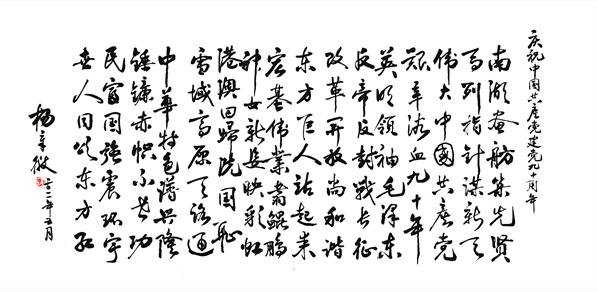 庆祝中国共产党建党九十周年
南湖画舫集先贤
马列指针谋新天
伟大中国共产党
艰辛血九十年
英明领袖毛泽东
反帝反封战长征
改革开放尚和谐
东方巨人站起来
宏基伟业翥鲲鹏
神女新姿映彩虹
港澳回归洗国耻
雪域高原天路通
中华特色谱兴隆
锤镰赤帜功
民富国强震环宇
世人同颂东方红
杨
年五月